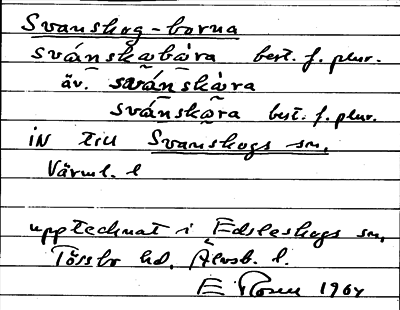 Svanskog-borna
svánskabàra best. f. plur.
äv. svánskàra
svánskara best. f. plur.
in till Svanskogs sn,
Värml. l
upptecknat i Edsleskogs sn,
Tössbo hd, Älvsb. l.
E Rosen 1964